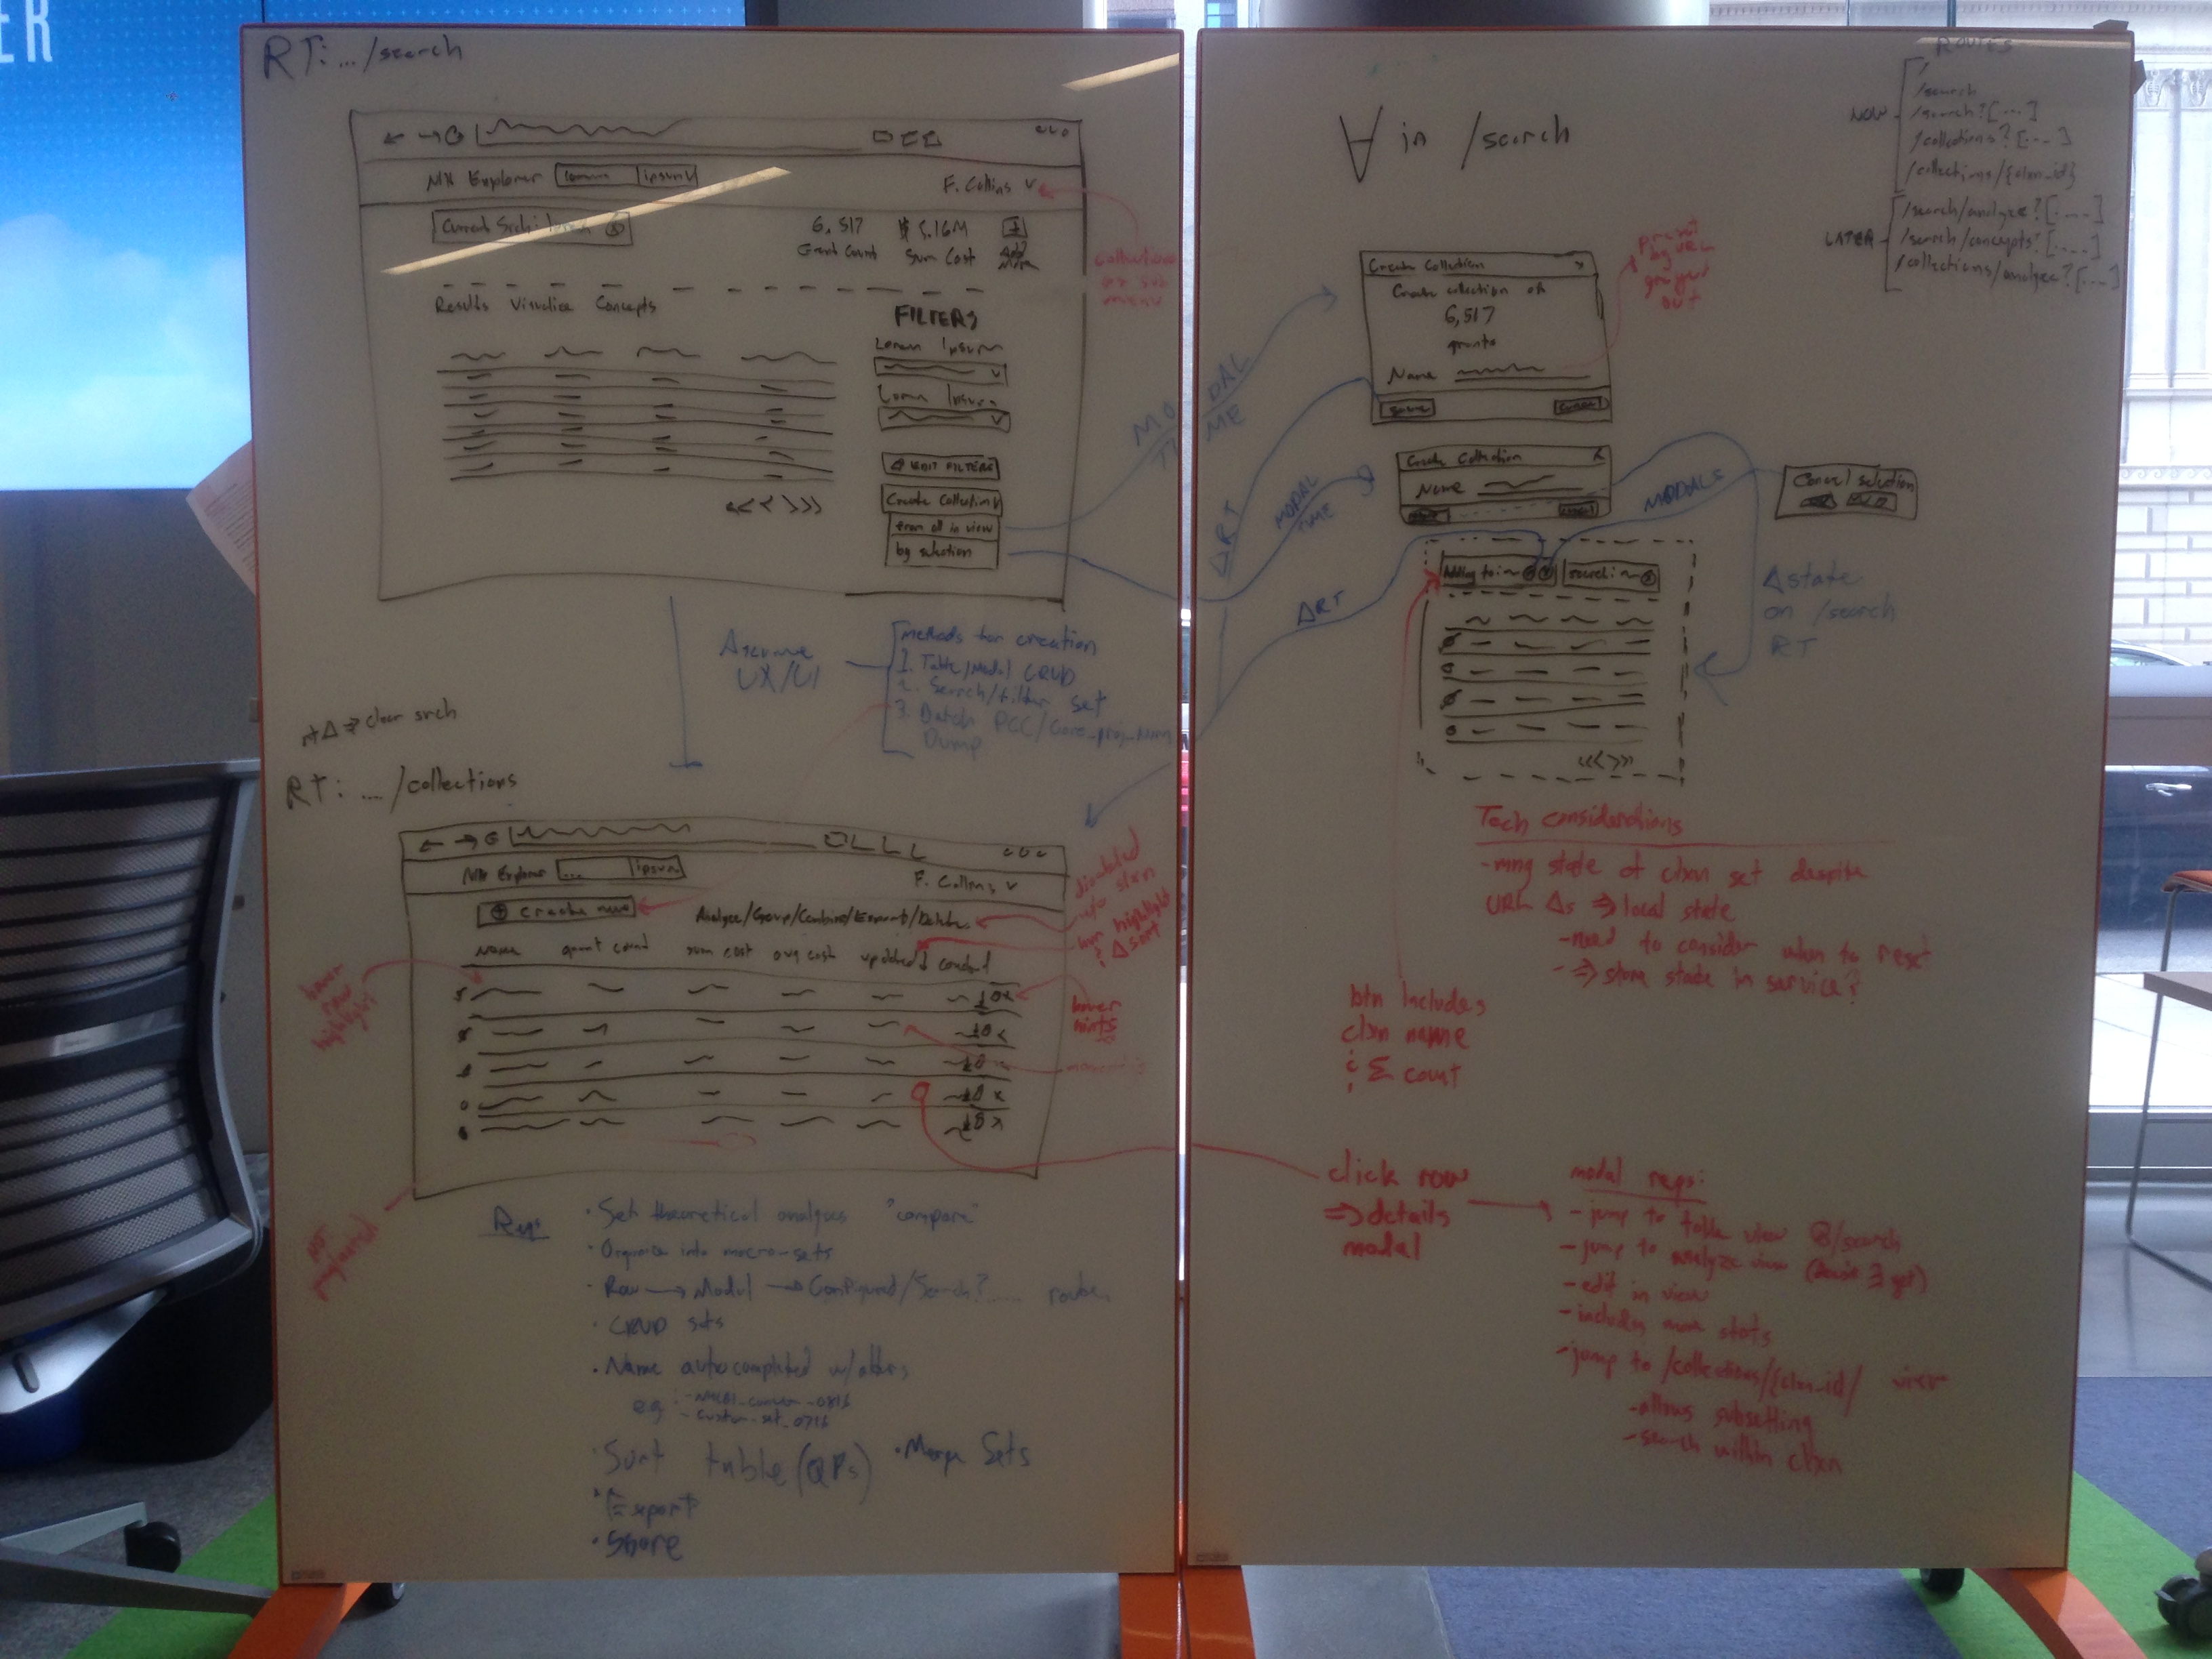 ER
RT: ... /search
NIH Explorer
ipsum
F. Collins v
Current Srch:
6,517
$ 5.16M
Grant Count
Sum Cost
collections
as sub
menu
Results Visualize Concepts
FILTERS
Lorem Ipsum
Lorem Ipsum
EDIT FILTERS
Create Collection v
from all in view
by selection
<< < > >>
MODAL
TIME
ΔRT
MODAL
TIME
ΔRT
Assume
UX/UI
methods for creation
1. Table/Modal CRUD
2. Search/filter set
3. Batch PCC/Core_proj_num
Dump
rt Δ ⇒ clear srch
RT: ... /collections
NIH Explorer
...
ipsum
F. Collins v
+ create new
Analyze/Group/Combine/Export/Delete
Name
grant count
sum cost
avg cost
updated
created
disabled
w/o clxn
hover highlight
& Δ sort
hover
row
highlight
hover
hints
not
paginated
Reqs
• Set theoretical analyses "compare"
• Organize into macro-sets
• Row → Modal → Configured/Search?..... routes
• CRUD sets
• Name autocompleted w/
eg
- custom-set_0716
• Sort table (QPs)
• Merge Sets
• Export
• Share
∀ in /search
ROUTES
NOW
/
/search
/search?[....]
/collections?[....]
/collections/{clxn_id}
LATER
/search/analyze?[.....]
/search/concepts?[.....]
/collections/analyze?[....]
Create Collection
x
Create collection of
6,517
grants
Name
save
cancel
preset
by URL
greyed
out
Create Collection
x
Name
cancel
MODALS
Cancel selection
Adding to: ~
search: ~
<< < > >>
Δ state
on /search
RT
Tech considerations
- mng state of clxn set despite
URL Δs ⇒ local state
- need to consider when to reset
- ⇒ store state in service?
btn includes
clxn name
& Σ count
click row
⇒ details
modal
modal reqs:
- jump to table view @/search
- jump to analyze view
- edit in view
- includes more stats
- jump to /collections/{clxn_id}/ view
- allows subsetting
- search within clxn